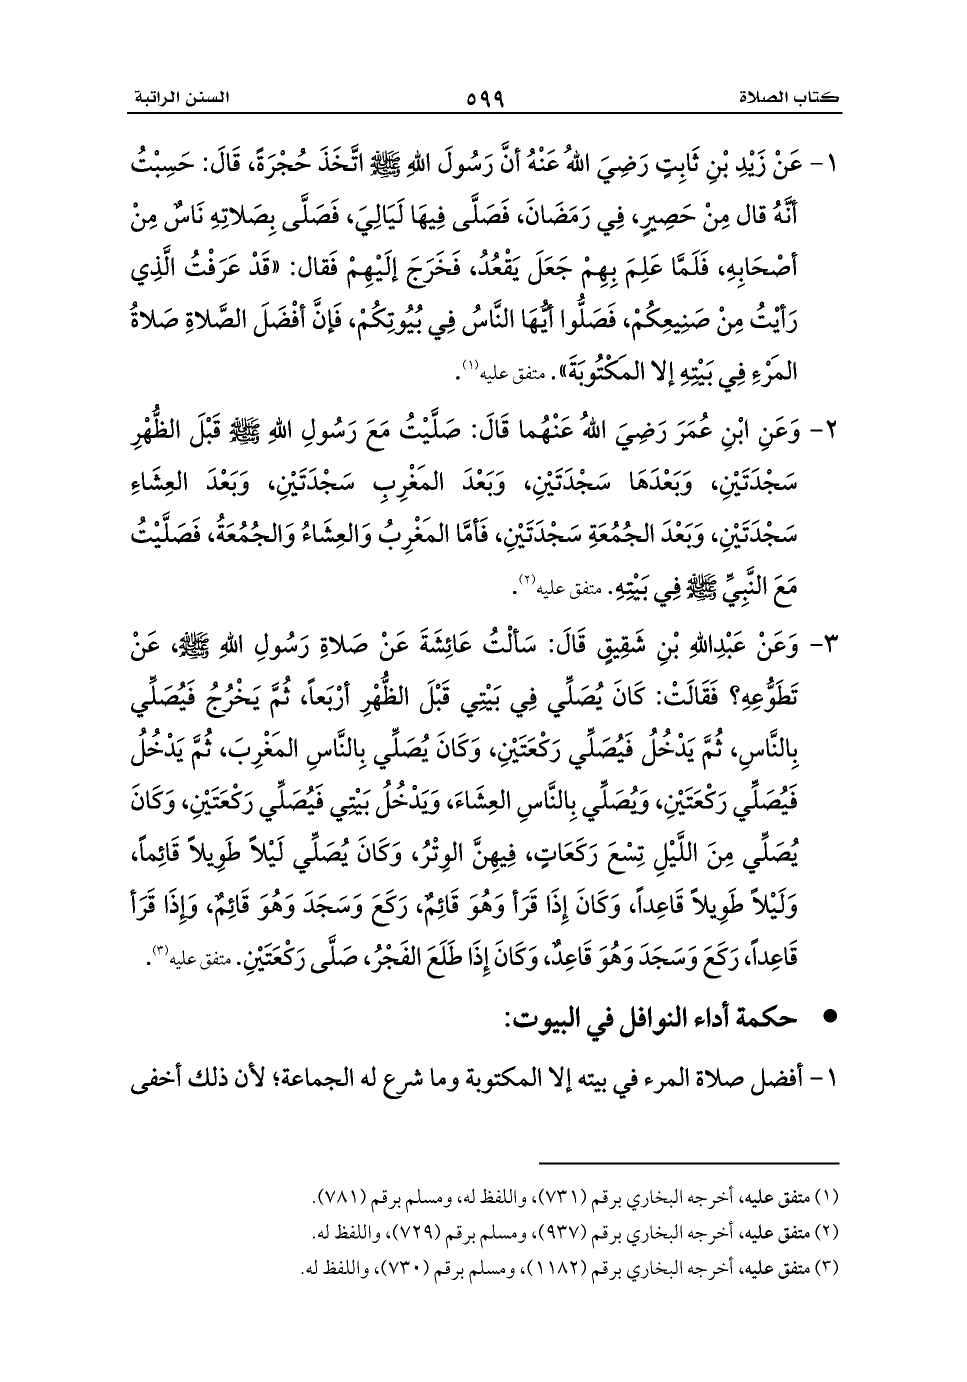 كتاب الصلاة ٥٩٩ السنن الراتبة
١- عَنْ زَيْدِ بْنِ ثَابِتٍ رَضِيَ اللهُ عَنْهُ أنَّ رَسُولَ اللهِ ﷺ اتَّخَذَ حُجْرَةً، قَالَ: حَسِبْتُ
أنَّهُ قال مِنْ حَصِيرٍ، فِي رَمَضَانَ، فَصَلَّى فِيهَا لَيَالِيَ، فَصَلَّى بِصَلاتِهِ نَاسٌ مِنْ
أصْحَابِهِ، فَلَمَّا عَلِمَ بِهِمْ جَعَلَ يَقْعُدُ، فَخَرَجَ إلَيْهِمْ فَقال: «قَدْ عَرَفْتُ الَّذِي
رَأيْتُ مِنْ صَنِيعِكُمْ، فَصَلُّوا أيُّهَا النَّاسُ فِي بُيُوتِكُمْ، فَإنَّ أفْضَلَ الصَّلاةِ صَلاةُ
المَرْءِ فِي بَيْتِهِ إلا المَكْتُوبَةَ». متفق عليه(١).
٢- وَعَنِ ابْنِ عُمَرَ رَضِيَ اللهُ عَنْهُما قَالَ: صَلَّيْتُ مَعَ رَسُولِ اللهِ ﷺ قَبْلَ الظُّهْرِ
سَجْدَتَيْنِ، وَبَعْدَهَا سَجْدَتَيْنِ، وَبَعْدَ المَغْرِبِ سَجْدَتَيْنِ، وَبَعْدَ العِشَاءِ
سَجْدَتَيْنِ، وَبَعْدَ الجُمُعَةِ سَجْدَتَيْنِ، فَأمَّا المَغْرِبُ وَالعِشَاءُ وَالجُمُعَةُ، فَصَلَّيْتُ
مَعَ النَّبِيِّ ﷺ فِي بَيْتِهِ. متفق عليه(٢).
٣- وَعَنْ عَبْدِاللهِ بْنِ شَقِيقٍ قَالَ: سَألْتُ عَائِشَةَ عَنْ صَلاةِ رَسُولِ اللهِ ﷺ، عَنْ
تَطَوُّعِهِ؟ فَقَالَتْ: كَانَ يُصَلِّي فِي بَيْتِي قَبْلَ الظُّهْرِ أرْبَعاً، ثُمَّ يَخْرُجُ فَيُصَلِّي
بِالنَّاسِ، ثُمَّ يَدْخُلُ فَيُصَلِّي رَكْعَتَيْنِ، وَكَانَ يُصَلِّي بِالنَّاسِ المَغْرِبَ، ثُمَّ يَدْخُلُ
فَيُصَلِّي رَكْعَتَيْنِ، وَيُصَلِّي بِالنَّاسِ العِشَاءَ، وَيَدْخُلُ بَيْتِي فَيُصَلِّي رَكْعَتَيْنِ، وَكَانَ
يُصَلِّي مِنَ اللَّيْلِ تِسْعَ رَكَعَاتٍ، فِيهِنَّ الوِتْرُ، وَكَانَ يُصَلِّي لَيْلاً طَوِيلاً قَائِماً،
وَلَيْلاً طَوِيلاً قَاعِداً، وَكَانَ إذَا قَرَأ وَهُوَ قَائِمٌ، رَكَعَ وَسَجَدَ وَهُوَ قَائِمٌ، وَإذَا قَرَأ
قَاعِداً، رَكَعَ وَسَجَدَ وَهُوَ قَاعِدٌ، وَكَانَ إذَا طَلَعَ الفَجْرُ، صَلَّى رَكْعَتَيْنِ. متفق عليه(٣).
● حكمة أداء النوافل في البيوت:
١- أفضل صلاة المرء في بيته إلا المكتوبة وما شرع له الجماعة؛ لأن ذلك أخفى
(١) متفق عليه، أخرجه البخاري برقم (٧٣١)، واللفظ له، ومسلم برقم (٧٨١).
(٢) متفق عليه، أخرجه البخاري برقم (٩٣٧)، ومسلم برقم (٧٢٩)، واللفظ له.
(٣) متفق عليه، أخرجه البخاري برقم (١١٨٢)، ومسلم برقم (٧٣٠)، واللفظ له.